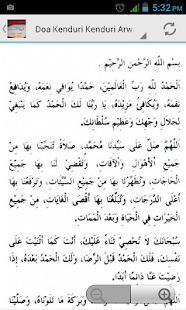 5:32 PM
Doa Kenduri Kenduri Arw
بِسْمِ اللَّهِ الرَّحْمَنِ الرَّحِيْمِ
اَلْحَمْدُ لِلَّهِ رَبِّ الْعَالَمِيْنَ، حَمْدًا يُوَافِي نِعَمَهُ، وَيُدَافِعُ
نِقَمَهُ، وَيُكَافِئُ مَزِيْدَهُ، يَا رَبَّنَا لَكَ الْحَمْدُ كَمَا يَنْبَغِي
لِجَلَالِ وَجْهِكَ وَعَظِيْمِ سُلْطَانِكَ.
اَللَّهُمَّ صَلِّ عَلَى سَيِّدِنَا مُحَمَّدٍ، صَلَاةً تُنْجِيْنَا بِهَا مِنْ
جَمِيْعِ الْأَهْوَالِ وَالْآفَاتِ، وَتَقْضِي لَنَا بِهَا جَمِيْعَ
الْحَاجَاتِ، وَتُطَهِّرُنَا بِهَا مِنْ جَمِيْعِ السَّيِّئَاتِ، وَتَرْفَعُنَا بِهَا
أَعْلَى الدَّرَجَاتِ، وَتُبَلِّغُنَا بِهَا أَقْصَى الْغَايَاتِ، مِنْ جَمِيْعِ
الْخَيْرَاتِ فِي الْحَيَاةِ وَبَعْدَ الْمَمَاتِ.
سُبْحَانَكَ لَا نُحْصِيْ ثَنَاءً عَلَيْكَ، أَنْتَ كَمَا أَثْنَيْتَ عَلَى
نَفْسِكَ، فَلَكَ الْحَمْدُ قَبْلَ الرِّضَا، وَلَكَ الْحَمْدُ بَعْدَهُ، إِذَا
رَضِيْتَ عَنَّا دَائِمًا أَبَدًا.
بَرَكَةَ مَا تَلَوْنَاهُ، وَصَلَّيْنَا